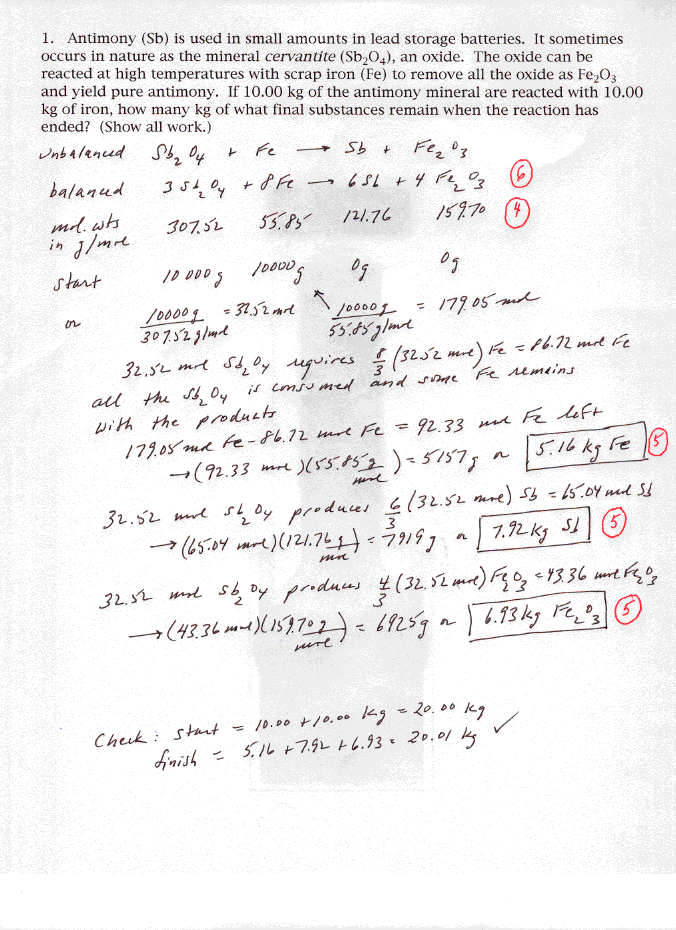 1. Antimony (Sb) is used in small amounts in lead storage batteries. It sometimes
occurs in nature as the mineral cervantite (Sb₂O₄), an oxide. The oxide can be
reacted at high temperatures with scrap iron (Fe) to remove all the oxide as Fe₂O₃
and yield pure antimony. If 10.00 kg of the antimony mineral are reacted with 10.00
kg of iron, how many kg of what final substances remain when the reaction has
ended? (Show all work.)
unbalanced Sb₂O₄ + Fe → Sb + Fe₂O₃
balanced 3 Sb₂O₄ + 8 Fe → 6 Sb + 4 Fe₂O₃ 6
mol. wts 307.52 55.85 121.76 159.70 4
in g/mol
start 10 000 g 10000 g 0g 0g
or 10000 g / 307.52 g/mol = 32.52 mol 10000 g / 55.85 g/mol = 179.05 mol
32.52 mol Sb₂O₄ requires 8/3 (32.52 mol) Fe = 86.72 mol Fe
all the Sb₂O₄ is consumed and some Fe remains
with the products
179.05 mol Fe - 86.72 mol Fe = 92.33 mol Fe left
→ (92.33 mol)(55.85 g/mol) = 5157 g or 5.16 kg Fe 5
32.52 mol Sb₂O₄ produces 6/3 (32.52 mol) Sb = 65.04 mol Sb
→ (65.04 mol)(121.76 g/mol) = 7919 g or 7.92 kg Sb 5
32.52 mol Sb₂O₄ produces 4/3 (32.52 mol) Fe₂O₃ = 43.36 mol Fe₂O₃
→ (43.36 mol)(159.70 g/mol) = 6925 g or 6.93 kg Fe₂O₃ 5
Check: start = 10.00 + 10.00 kg = 20.00 kg
finish = 5.16 + 7.92 + 6.93 = 20.01 kg ✓